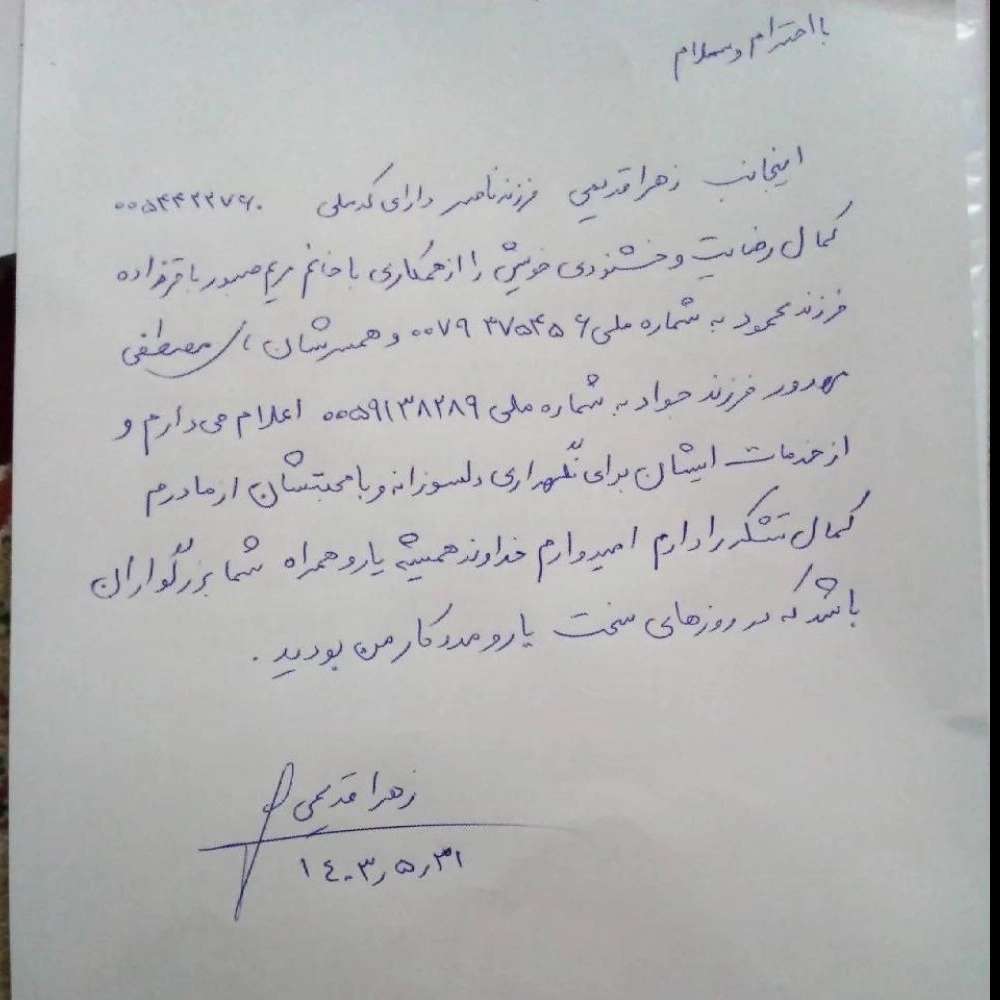 با احترام و سلام
اینجانب زهرا قدیمی فرزند ناصر دارای کدملی ۰۰۵۴۴۲۲۷۶۰
کمال رضایت و خشنودی خویش را از همکاری با خانم مریم صبور باقرزاده
فرزند محمود به شماره ملی ۰۰۷۹۳۷۵۴۵۶ و همسرشان آقای مصطفی
مهدور فرزند جواد به شماره ملی ۰۰۵۹۱۳۸۲۸۹ اعلام می دارم و
از خدمات ایشان برای نگهداری دلسوزانه و با محبتشان از مادرم
کمال تشکر را دارم امیدوارم خداوند همیشه یار و همراه شما بزرگواران
باشد که در روزهای سخت یار و مددکار من بودید.
زهرا قدیمی
۱۴۰۳٫۵٫۳۱